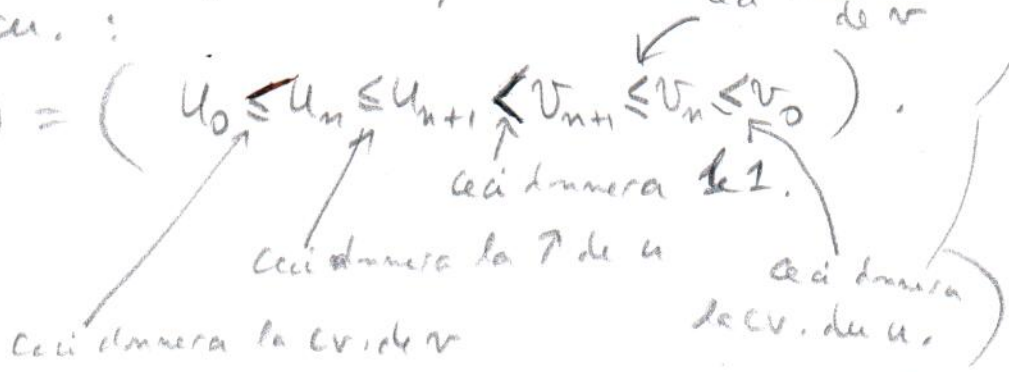 de v
= ( u₀ ≤ uₙ ≤ uₙ₊₁ < vₙ₊₁ ≤ vₙ ≤ v₀ ) .
ceci donnera le 1.
ceci donnera la ↑ de u
ceci donnera
la cv. du u.
ceci donnera la cv. de v